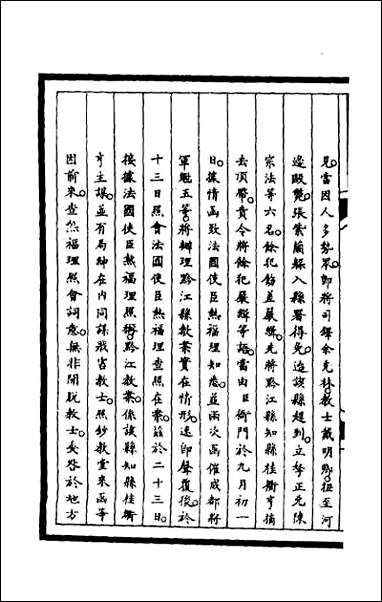 見當因人多勢眾即將司鐸余克林教士戴明卿扭至河
邊毆斃張紫蘭躲入縣署得免迨該縣趕到立拏正兇陳
宗法等六名餘犯飭差嚴緝先將黔江縣知縣桂衢亨摘
去頂帶責令將餘犯嚴緝等語當由臣衙門於九月初一
日據情函致法國使臣熱福理知悉並兩次函催成都將
軍魁玉等將辦理黔江縣教案實在情形迅即聲復後於
十三日照會法國使臣熱福理查照在案茲於二十三日
接據法國使臣熱福理照稱黔江教案係該縣知縣桂衢
亨主謀並有局紳在內同謀戕害教士照鈔教堂來函等
因前來查熱福理照會詞意無非開脫教士矢咎於地方